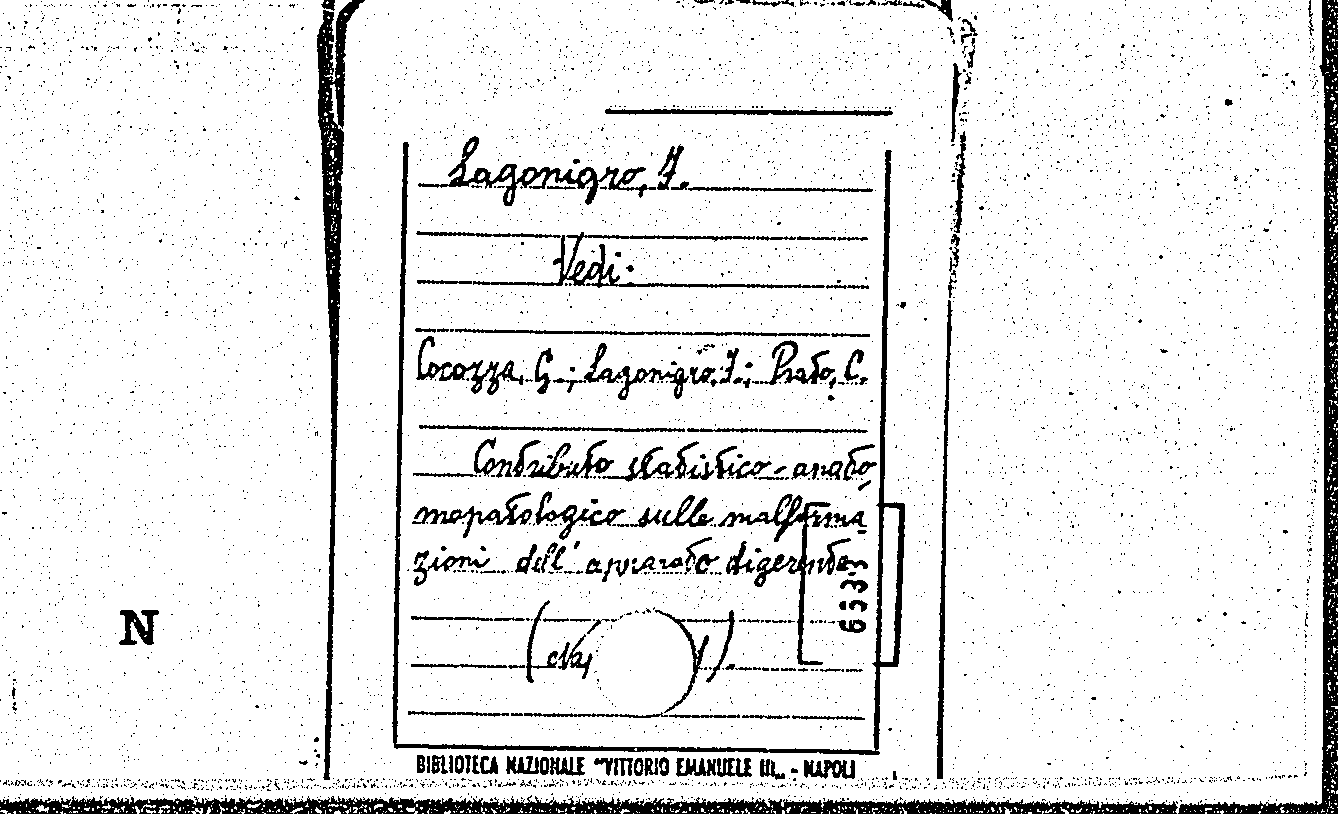 Lagonigro, I.
Vedi:
Cocozza, G.; Lagonigro, I.; Prato, C.
Contributo statistico-anato
mopatologico sulle malforma
zioni dell'apparato digerente
6533
N
BIBLIOTECA NAZIONALE "VITTORIO EMANUELE III„ - NAPOLI